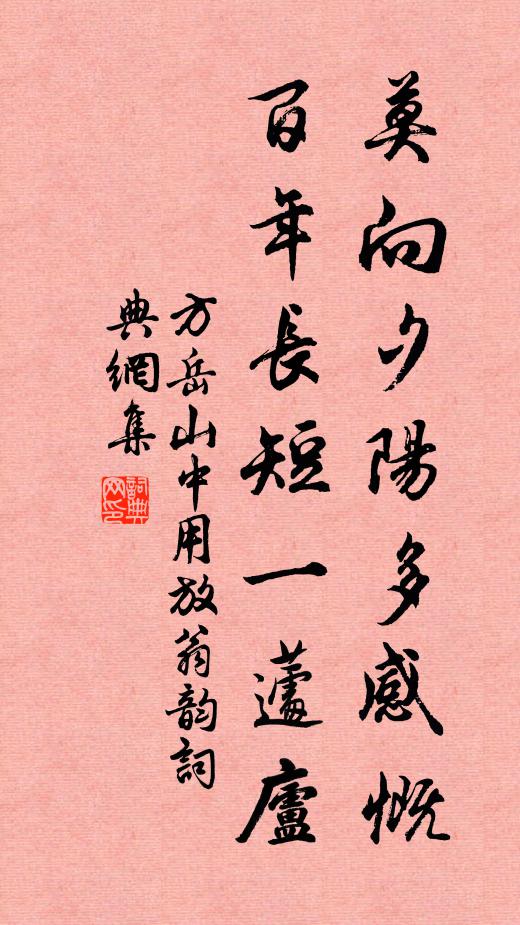 莫向夕陽多感慨
百年長短一蘧廬
方岳山中用放翁韵詞
典網集
詞典
网印